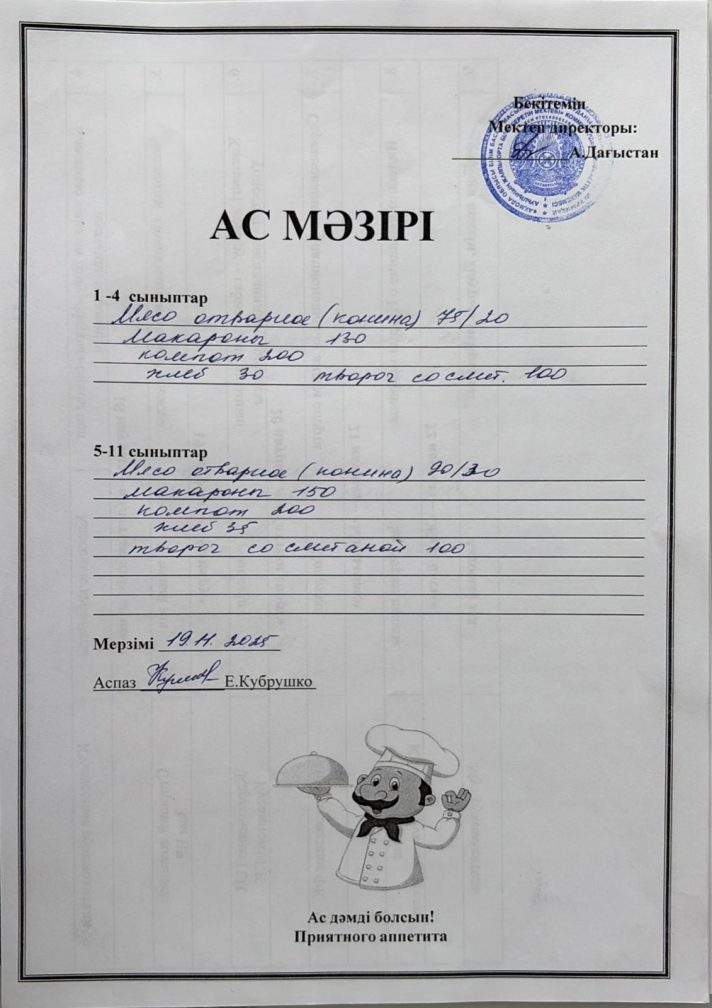 Бекітемін
Мектеп директоры:
А.Дағыстан
АС МӘЗІРІ
1 -4 сыныптар
Мясо отварное (конина) 75/20
Макароны 130
компот 200
хлеб 30 творог со смет. 100
5-11 сыныптар
Мясо отварное (конина) 90/30
макароны 150
компот 200
хлеб 35
творог со сметаной 100
Мерзімі 19.11.2025
Аспаз Е.Кубрушко
Ас дәмді болсын!
Приятного аппетита